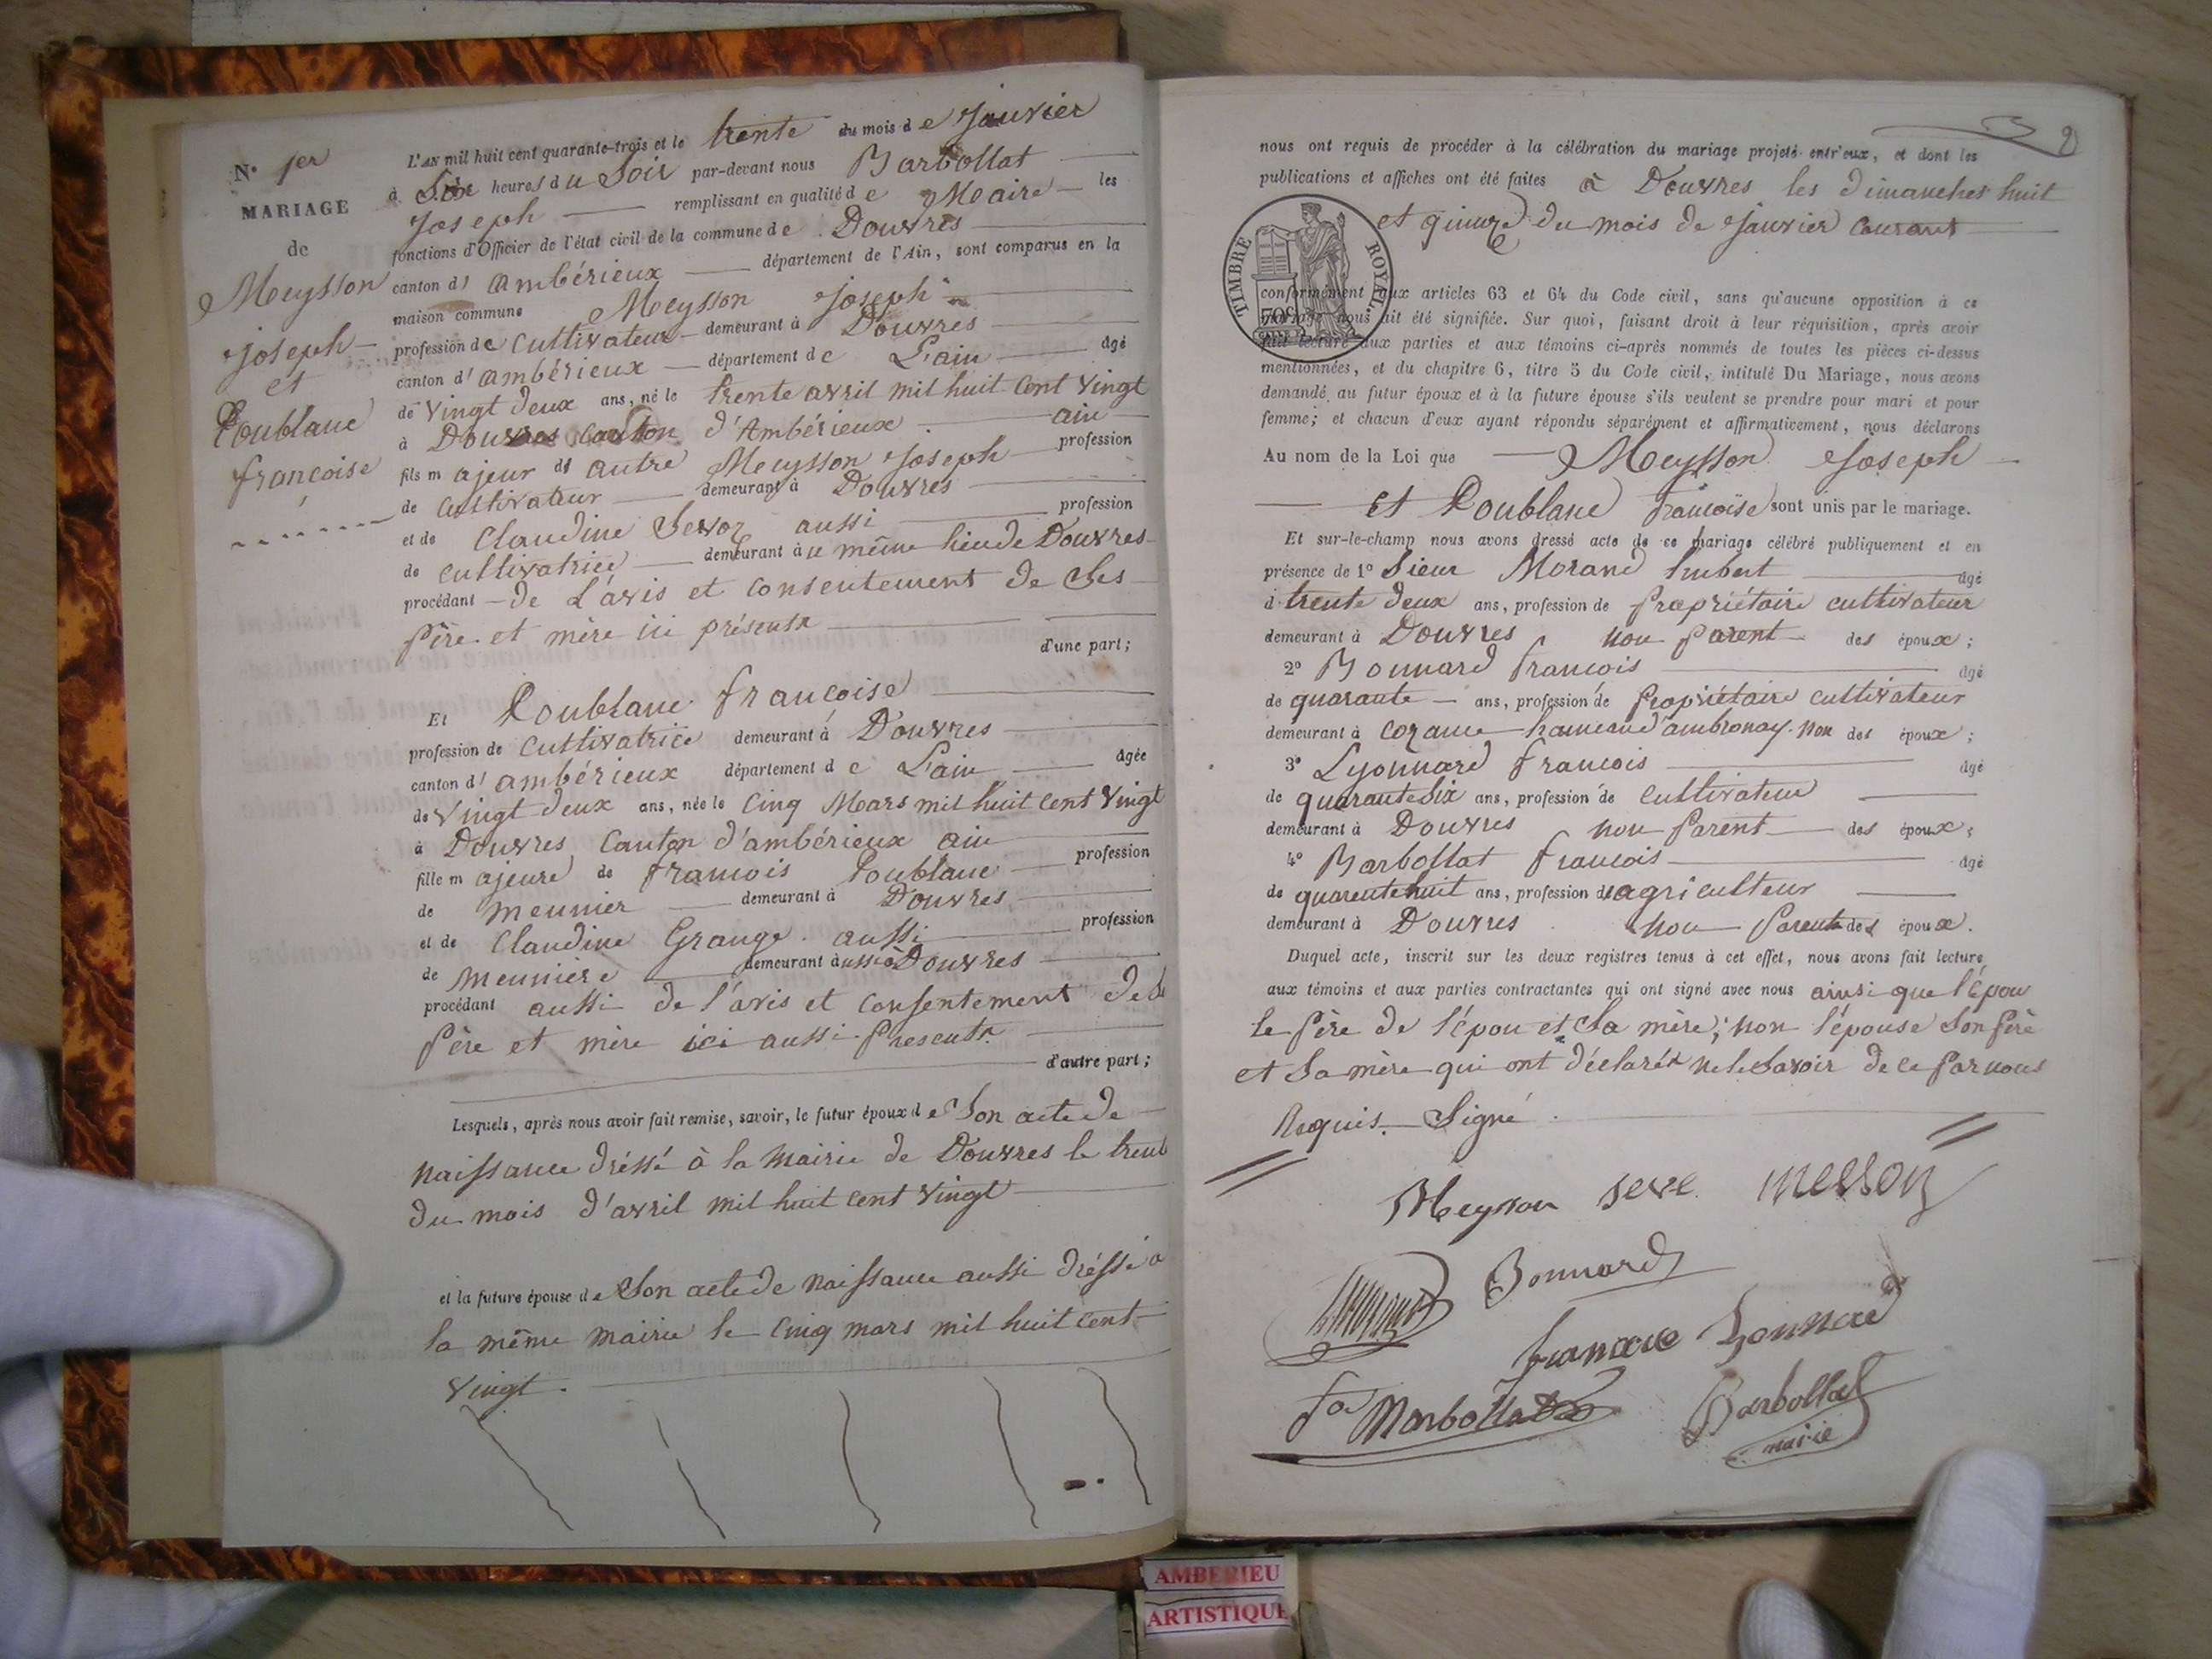 N° 1er
MARIAGE
de
Meysson
Joseph
et
Poublanc
françoise
L'AN mil huit cent quarante-trois et le trente du mois de Janvier
à Six heures du Soir par-devant nous Barbollat
Joseph remplissant en qualité de Maire les
fonctions d'Officier de l'état civil de la commune de Douvres
canton d' ambérieux département de l'Ain, sont comparus en la
maison commune Meysson Joseph
profession de Cultivateur demeurant à Douvres
canton d' ambérieux département de L'ain âgé
de Vingt deux ans, né le trente avril mil huit Cent Vingt
à Douvres Canton d'Ambérieux ain
fils majeur de autre Meysson Joseph profession
de Cultivateur demeurant à Douvres
et de Claudine aussi profession
de cultivatrice demeurant au même lieu de Douvres
procédant de L'avis et consentement de Ses
Père et mère ici présents
d'une part;
Et Poublanc françoise
profession de Cultivatrice demeurant à Douvres
canton d' ambérieux département de L'ain âgée
de Vingt deux ans, née le Cinq Mars mil huit Cent Vingt
à Douvres Canton d'ambérieux ain
fille majeure de françois Poublanc profession
de Meunier demeurant à Douvres
et de Claudine Grange aussi profession
de Meunière demeurant aussi à Douvres
procédant aussi de l'avis et consentement de
Père et mère ici aussi Presents
d'autre part;
Lesquels, après nous avoir fait remise, savoir, le futur époux de Son acte de
Naissance dréssé à la Mairie de Douvres le trente
du mois d'avril mil huit Cent Vingt
et la future épouse de Son acte de Naissance aussi dréssé à
la même Mairie le Cinq mars mil huit Cent
Vingt.
2
nous ont requis de procéder à la célébration du mariage projeté entr'eux, et dont les
publications et affiches ont été faites à Douvres les dimanches huit
et quinze du mois de Janvier Courant
TIMBRE ROYAL
conformément aux articles 63 et 64 du Code civil, sans qu'aucune opposition à ce
mariage nous ait été signifiée. Sur quoi, faisant droit à leur réquisition, après avoir
fait lecture aux parties et aux témoins ci-après nommés de toutes les pièces ci-dessus
mentionnées, et du chapitre 6, titre 5 du Code civil, intitulé Du Mariage, nous avons
demandé au futur époux et à la future épouse s'ils veulent se prendre pour mari et pour
femme; et chacun d'eux ayant répondu séparément et affirmativement, nous déclarons
Au nom de la Loi que Meysson Joseph
et Poublanc françoise sont unis par le mariage.
Et sur-le-champ nous avons dressé acte de ce mariage célébré publiquement et en
présence de 1° Sieur Morand hubert âgé
d trente deux ans, profession de Propriétaire cultivateur
demeurant à Douvres non Parent des époux;
2° Bonnard françois âgé
de quarante ans, profession de Propriétaire cultivateur
demeurant à Cozance hameau d'ambronay. non des époux;
3° Lyonnard françois âgé
de quarante Six ans, profession de cultivateur
demeurant à Douvres non Parent des époux;
4° Barbollat françois âgé
de quarente huit ans, profession d'agriculteur
demeurant à Douvres non Parents des époux.
Duquel acte, inscrit sur les deux registres tenus à cet effet, nous avons fait lecture
aux témoins et aux parties contractantes qui ont signé avec nous ainsi que l'épou
le Père de l'épou et Sa mère; non l'épouse Son Père
et Sa mère qui ont déclarés ne le Savoir de ce Par nous
Requis. Signé
Meysson seve messon
Bonnard
Barbollat
maire
AMBERIEU
ARTISTIQUE